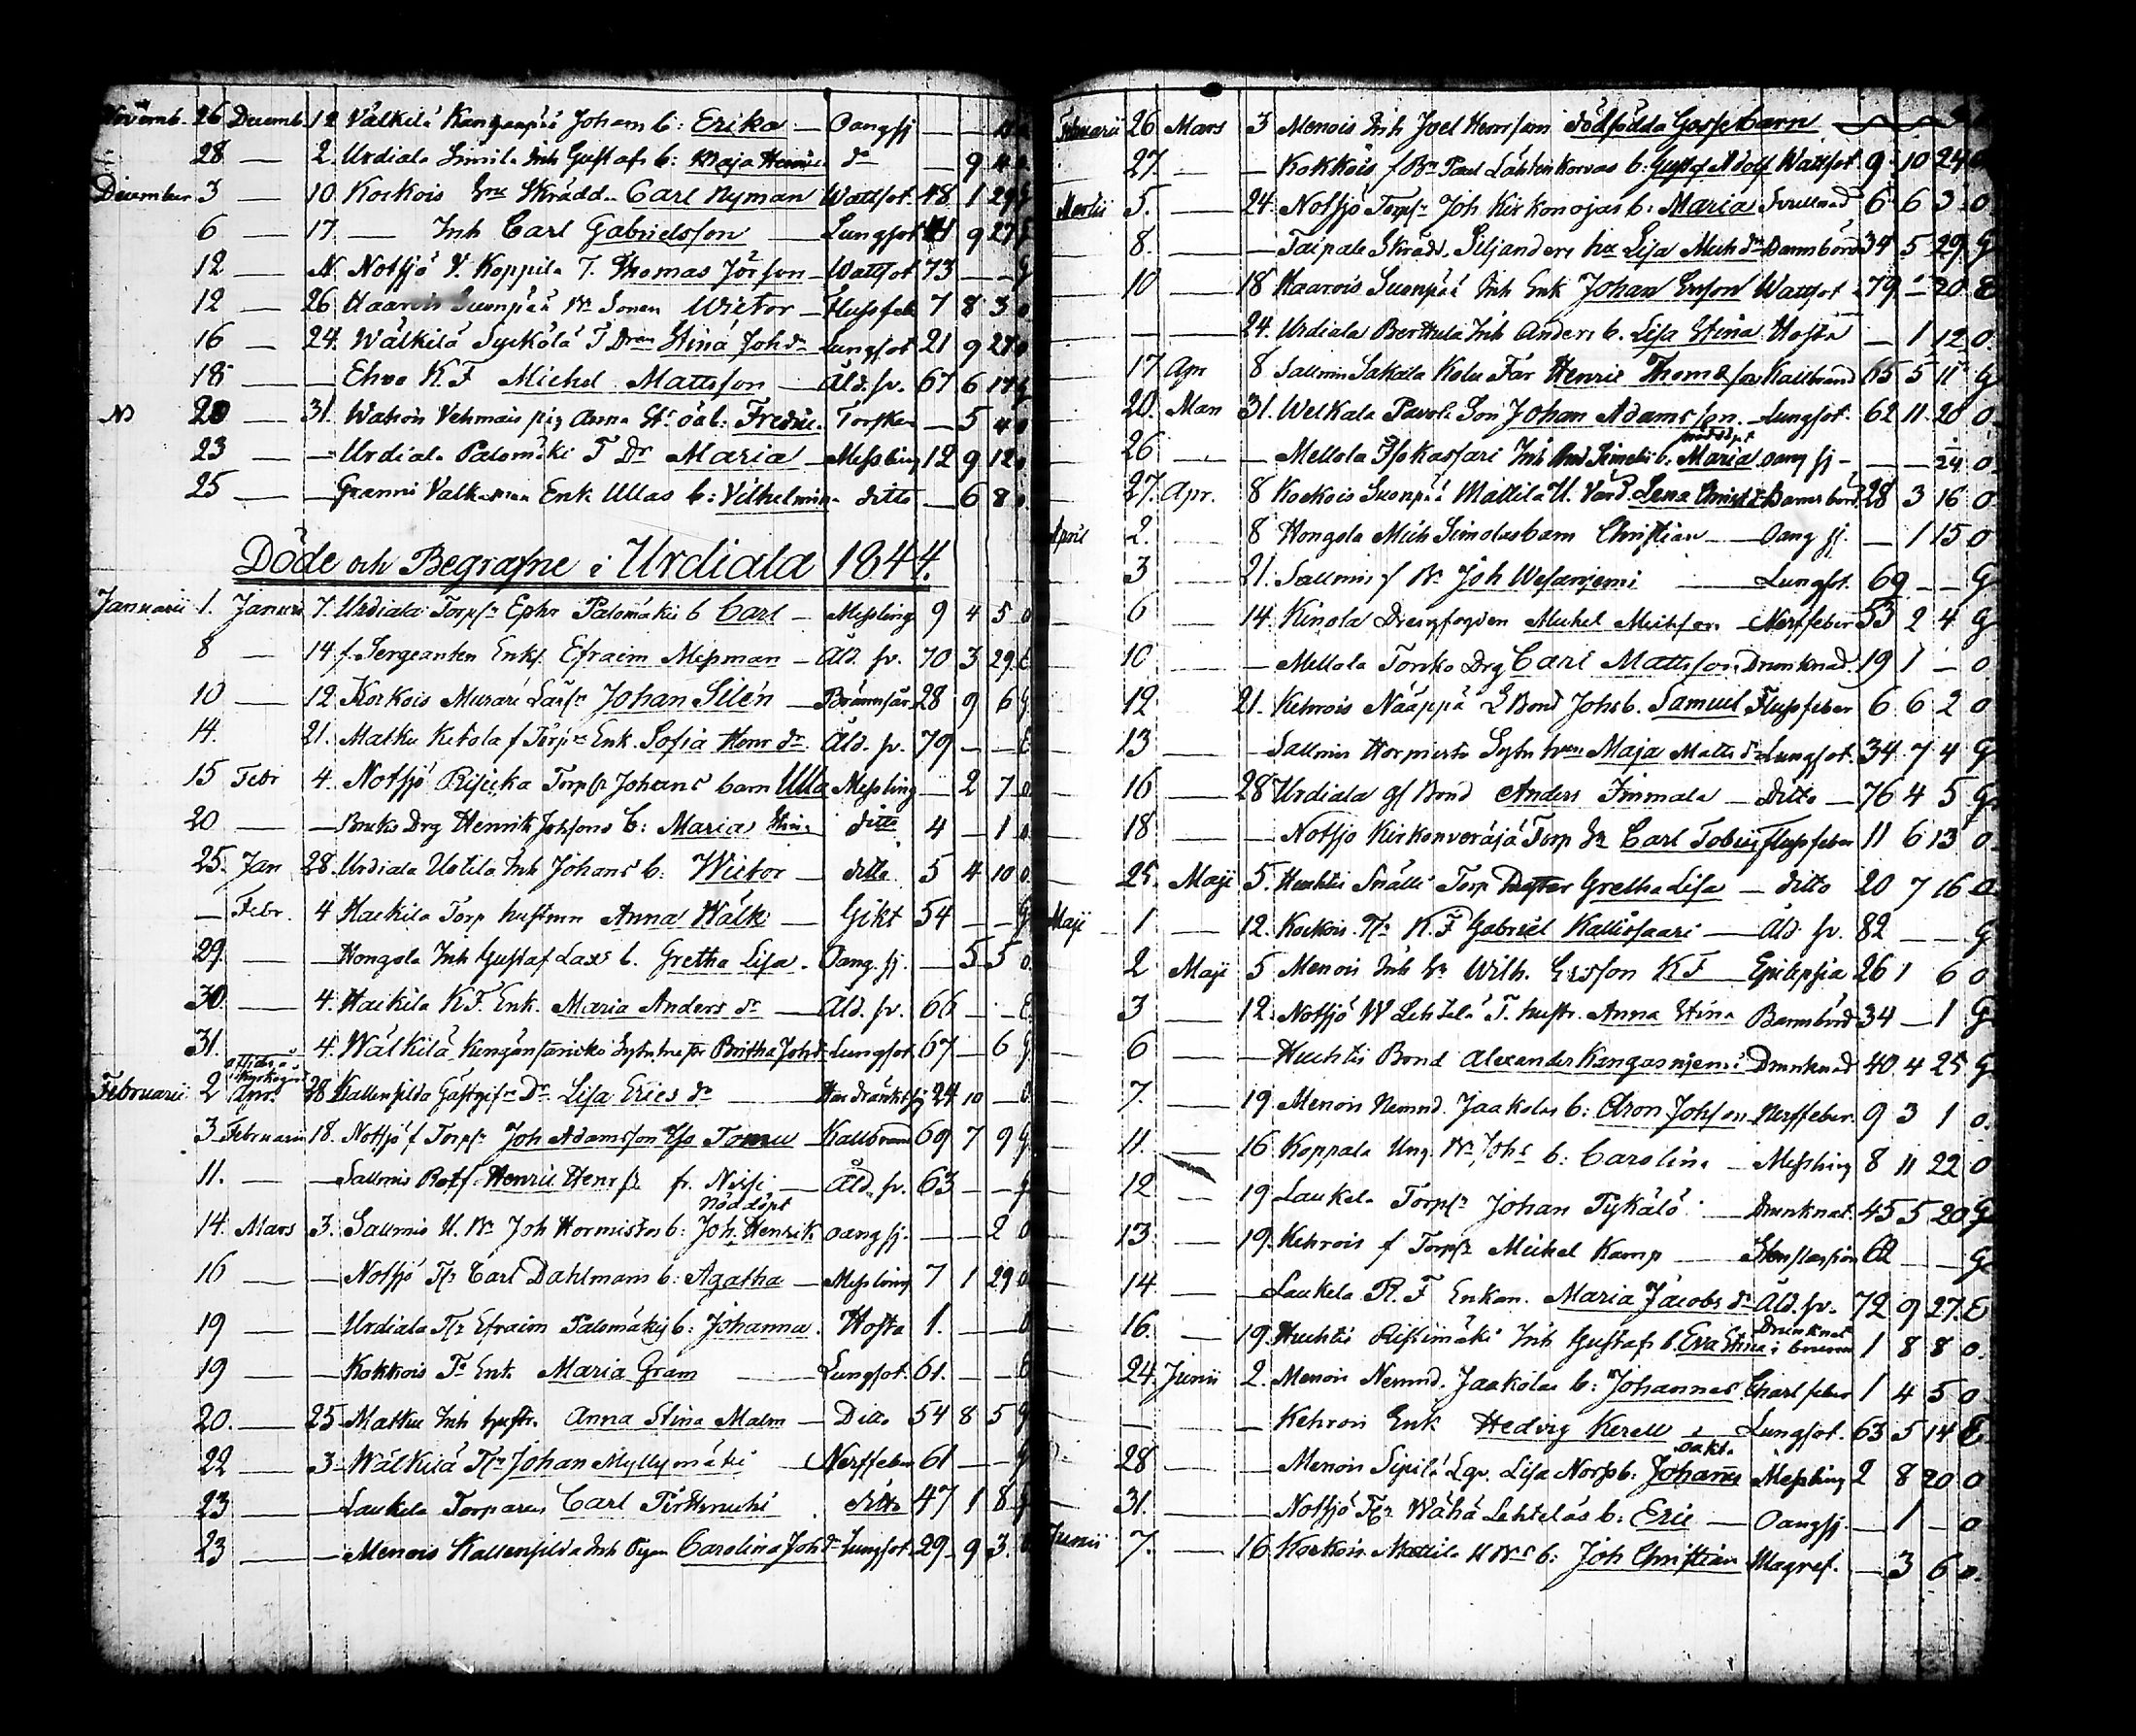 Novemb. 26 Decemb. 12 Välkilä Kangaspää Johans b: Erika — Oangsj — —
28 — 2. Urdiala Simila Inh Gustafs b: Maja d° — 9 4 0
December 3 — 10. Kockois Skrädd. Carl Nyman Wattsot. 48 1 29 G
6 — 17. — Inh Carl Gabrielsson — Lungsot 41 9 27 G
12 — N. Notsjö Y. Koppila T. Thomas Jörson — Wattsot 73 — — G
12 — 26. Haarois Suonpää Sonen Wictor — Flussfeb 7 8 3 0
16 — 24. Wälkilä Syckölä T Dran Stina Johdr Lungsot 21 9 27 0
18 — — Ehro K F Michel Mattsson — Åld. sv. 67 6 17 G
20 — 31. Watsiö Vehmais pig Anna St. oä b: Fredric. Torsken — 5 4 0
23 — — Urdiala Palomäki T Dr Maria — Messling 12 9 12 0
25 — — Grenni Enk Ullas b: Vilhelmina ditto — 6 8 0.
Döde och Begrafne i Urdiala 1844.
Januarii 1. Januari 7. Urdiala Torpsn Ephr Palomäkis b Carl — Messling 9 4 5 0
8 — 14. f. Sergeanten Enkl. Efraim Messman — Åld. sv. 70 3 29 E
10 — 12 Korkois Murari Lärl: Johan Silén — Brännsår 28 9 6 G
14. 21. Matku Ketola f Torp:s Enk. Sofia Henr dr Åld. sv. 79 — — E
15 Febr 4. Notsjö Torpsn Johans barn Ulla Messling — 2 7 0
20 — — Bruks Drg Henrik Johssons b: Maria Stina ditto 4 — 1 0
25. Jan 28. Urdiala Uotila Inh Johans b: Wictor — ditto 5 4 10 0
— Febr. 4 Hackila Torp hustrun Anna Wälk — Gikt 54 — — G
29. — — Hongola Inh Gustaf Laxs b. Gretha Lisa. Oang. sj. — 5 5 0.
30. — 4. Haikila K.F. Enk. Maria Anders dr — Åld. sv. 66 — — E
31. — 4. Wälkilä Britha Joh dr Lungsot 67 — 6 G
Februarii 2 Apr. 28 Kallenfilda Gästgifrs Dr. Lisa Erics dr 24 10 — 0
3 Februarii 18. Notsjö f Torpsn Joh Adamsson Iso Tomu — Kallbrand 69 7 9 G
11. — — Salmis Henric Henrss fr. — Åld. sv. 63 — — G
nöddöpt
14. Mars 3. Salmis U. Bn Joh Hormistos b: Joh. Henrik oang sj. — — 2 0
16 — — Notsjö Tpr Carl Dahlmans b: Agatha — Messling 7 1 29 0
19 — — Urdiala Tpr Efraim Palomäkis b: Johanna. Hosta 1. — — 0
19 — — Kokkois Ts Enk Maria Gram — Lungsot. 61. — — E
20. — 25. Matku Inh hustr. Anna Stina Malm — Ditto 54 8 5 G
22 — 3. Wälkilä Tpr Johan Myllymäki — Nerffeber 61 — — G
23 — — Laukela Torparen Carl ditto 47 1 8 G
23 — — Menois Kallenfilda Inh Pigan Carolina Joh dr Lungsot. 29. 9 3. 0
Februarii 26 Mars 3 Menois Inh Joel Henrssons dödfödda Gossebarn
27. — — Kokkois f Bn Paul Lähtenkorvas b. Gustaf Adolf Wattsot. 9 10 24 0
Martii 5. — 24. Notsjö Torpsn Joh Kirkonojas b: Maria Svullnad 6 6 3 0
8. — — Taipale Skrädd. Siljanders hu Lisa Mich dr Barnsbörd 34 5 29 G
10 — 18 Haarois Suonpää Inh Enk Johan Erson Wattsot 79 — 20 E
— — 24. Urdiala Berthula Inh Anders b. Lisa Stina Hosta — 1 12 0.
17 Apr 8 Salmis Sakaila Henric Thomasson Kallbrand 65 5 11 G
20. Mars 31. Welkala Pavola Son Johan Adamsson. Lungsot. 62 11 20 0.
nöddöpt
26 — — Mellola Isokassari Inh And Simelis b: Maria oang sj — — — 24 0
27. Apr. 8 Kockois Suonpää Mattila U. Värd. Lena Christ dr Barnsbörd 28 3 16 0
April 2. — 8 Hongola Mich Simolas barn Christian — Oang sj. — 1 15 0
3 — 21. Salmis f Bn Joh Wesaniemi — Lungsot. 69 — — G
6 — 14. Kinola Drengfogden Michel Michsson — Nerffeber 53 2 4 G
10 — — Mellola Torko Drg Carl Mattsson Drunknad. 19 1 — 0
12 21. Kehrois Nääppä L Bond Johs b. Samuel Flussfeber 6 6 2 0
13 — — Salmis Hormisto Sytn hun Maja Matts dr Lungsot. 34 7 4 G
16 — 28 Urdiala gl Bond Anders Immala — Ditto — 76 4 5 G
18 — — Notsjö Kirkonveräjä Torp Carl Tobias Flussfeber 11 6 13 0.
25. Maji 5. Huhtis Snälli Torp Dotter Gretha Lisa — ditto 20 7 16 0
Maji 1 — 12. Kockois K.F Gabriel Kallissaari — Åld. sv. 82 — — G
2 Maji 5 Menois Inh Wilh. Ersson K F — Epilepsia 26 1 6 0
3 — 12. Notsjö W Lehtelä T. hustr. Anna Stina Barnsbörd 34 — 1 G
6 — — Huchtis Bond Alexander Kangasniemi Drunknad 40 4 25 G
7. — 19. Menois Nemnd. Jaakolas b: Aron Johsson Nerffeber. 9 3 1 0.
11. — 16 Koppala Ung. Bn Johs b: Carolina — Messling 8 11 22 0
12 — 19 Laukela Torpsn Johan Tykälö — Drunknat. 45 5 20 G
13. — 19. Kehrois f Torpsn Michel Kamp — 62 — — G
14 — — Laukela R. F Enkan. Maria Jacobs dr Åld. sv. 72 9 27. E
16. — 19. Huchtis Ristimäki Inh Gustafs b. Eva Stina Drunknat i brunn 1 8 8 0.
24. Junii 2. Menois Nemnd. Jaakolas b: Johannes Charlfeber 1 4 5 0
— — Kehrois Enk Hedvig Kerell — Lungsot. 63 5 14 E
oäkta
28 — — Menois Sipilä Lgv. Lisa Norss b: Johannes Messling 2 8 20 0
31. — — Notsjö Tpr Wähä Lehteläs b: Eric — Oangsj. — 1 — 0
Junii 7. — 16. Kockois Mattila U Bns b: Joh Christian Magref. — 3 6 0.